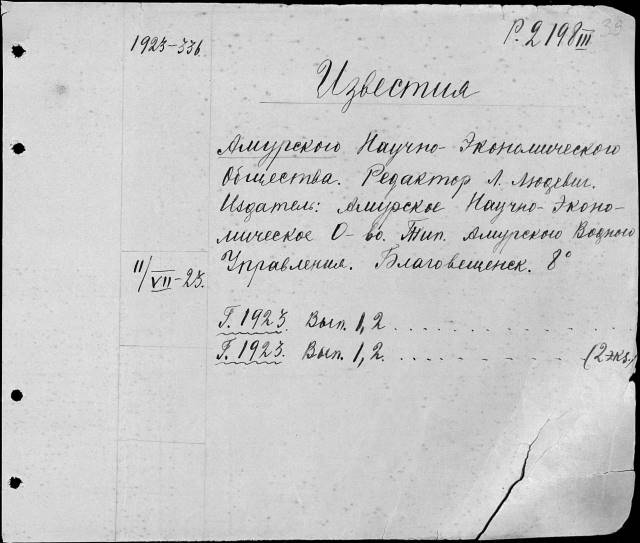 Р.2 198 III 39
1923-336
Известия
Амурского Научно-Экономического
Общества. Редактор Л. Людевиг.
Издатель: Амурское Научно-Эконо-
мическое О-во. Тип. Амурского Водного
Управления. Благовещенск. 8°
11/VII-23.
Г. 1923. Вып. 1, 2 . . . . . . . . . . . . .
Г. 1923. Вып. 1, 2. . . . . . . . . . . (2 экз.)